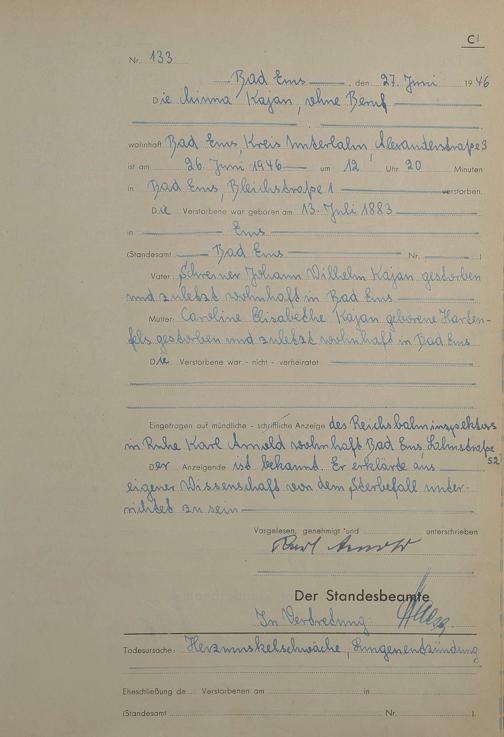 C
Nr. 133
Bad Ems, den 27. Juni 1946
Die Minna Kajan, ohne Beruf
wohnhaft Bad Ems, Kreis Unterlahn, Alexanderstraße 3
ist am 26. Juni 1946 um 12 Uhr 20 Minuten
in Bad Ems, Bleichstraße 1 verstorben.
Die Verstorbene war geboren am 13. Juli 1883
in Ems
(Standesamt Bad Ems Nr. )
Vater: Schreiner Johann Wilhelm Kajan gestorben
und zuletzt wohnhaft in Bad Ems
Mutter: Caroline Elisabethe Kajan geborene Harten-
fels gestorben und zuletzt wohnhaft in Bad Ems
Die Verstorbene war - nicht - verheiratet
Eingetragen auf mündliche - schriftliche Anzeige des Reichsbahninspektors
in Ruhe Karl Arnold wohnhaft Bad Ems, Lahnstraße
52
Der Anzeigende ist bekannt. Er erklärte aus
eigener Wissenschaft von dem Sterbefall unter-
richtet zu sein
Vorgelesen, genehmigt und unterschrieben
Karl Arnold
Der Standesbeamte
In Vertretung
Todesursache: Herzmuskelschwäche, Lungenentzündung
Eheschließung de Verstorbenen am in
(Standesamt Nr. ).